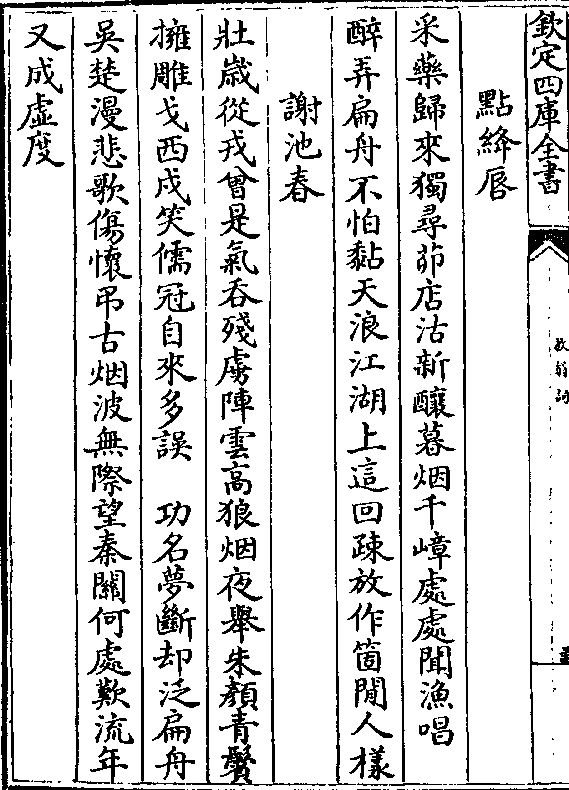 欽定四庫全書
放翁詞
點絳唇
采藥歸來獨尋茆店沽新釀暮烟千嶂處處聞漁唱
醉弄扁舟不怕黏天浪江湖上這回疎放作箇閒人樣
謝池春
壯歲從戎曾是氣吞殘虜陣雲高狼烟夜舉朱顏青鬢
擁雕戈西戍笑儒冠自來多誤　功名夢斷却泛扁舟
吳楚漫悲歌傷懷弔古烟波無際望秦關何處歎流年
又成虛度